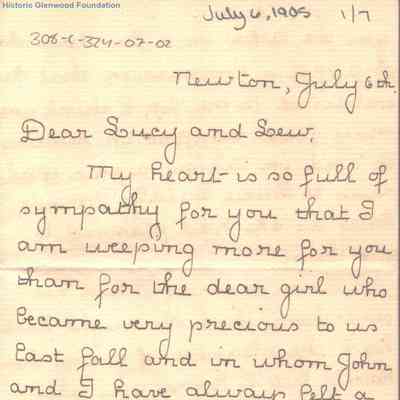 Historic Glenwood Foundation
July 6, 1905 1/7
308-C-324-07-02
Newton, July 6th.
Dear Lucy and Lew,
My heart is so full of
sympathy for you that I
am weeping more for you
than for the dear girl who
became very precious to us
last fall and in whom John
and I have always felt a